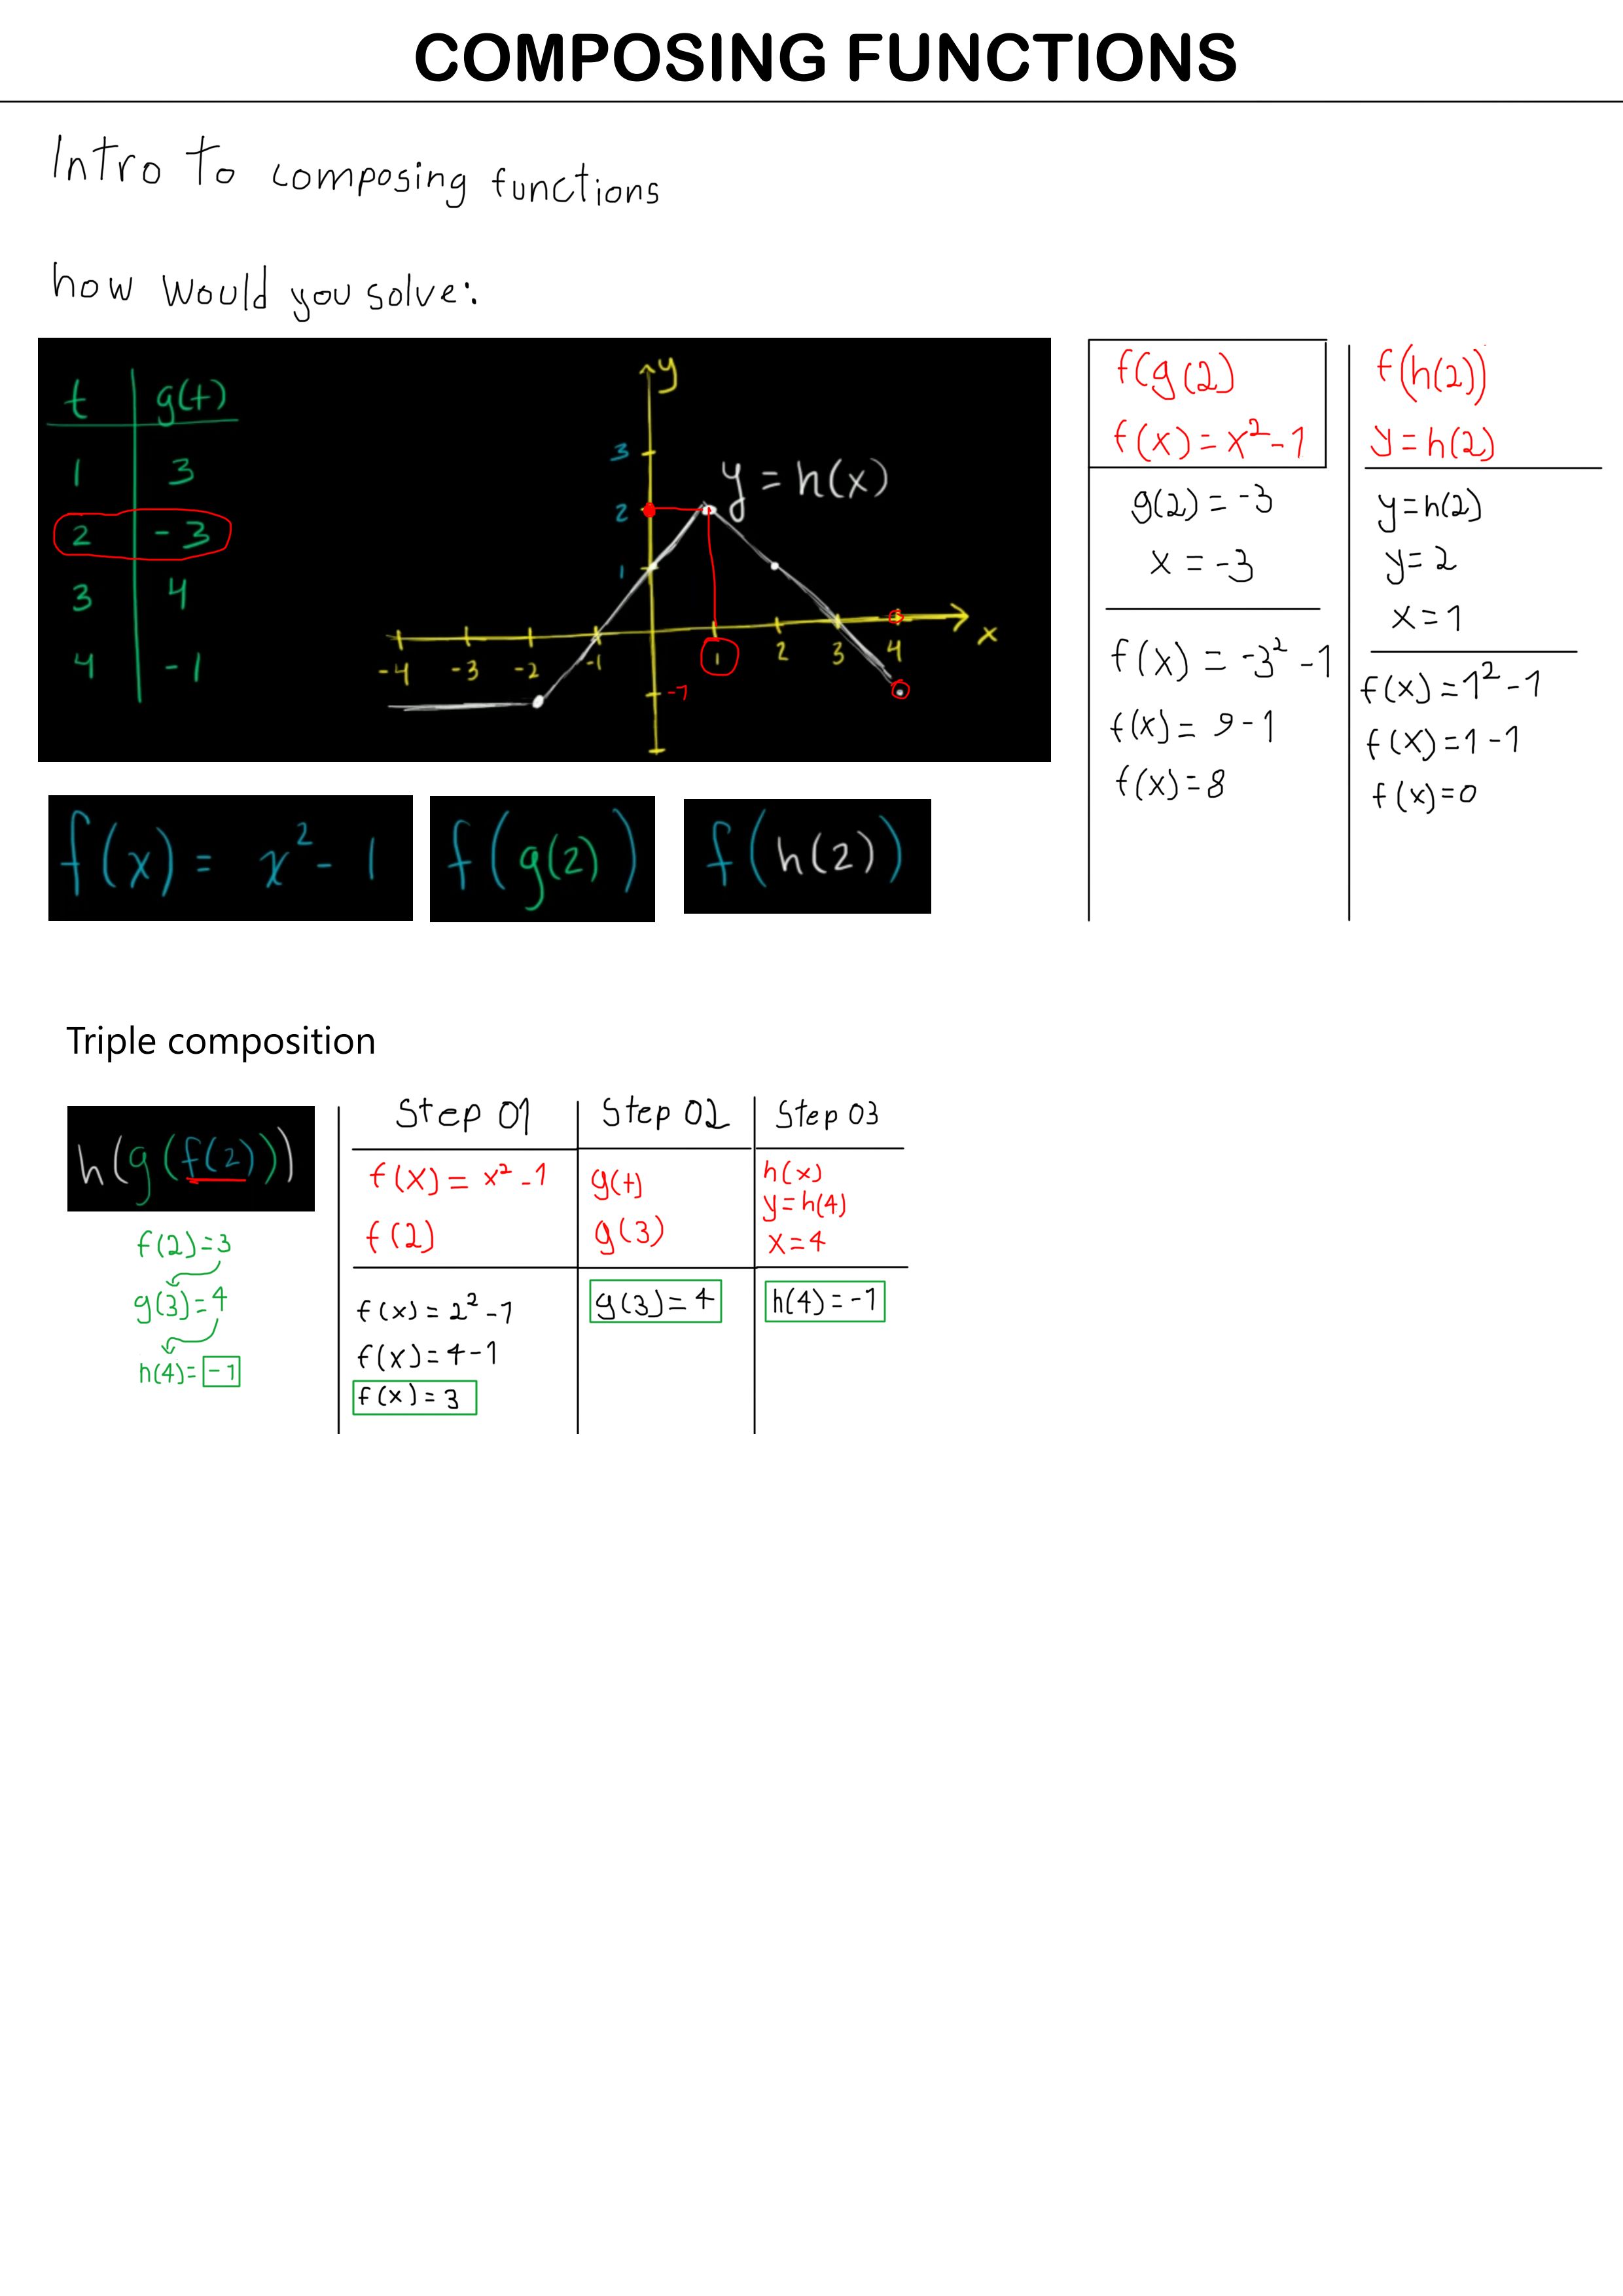 COMPOSING FUNCTIONS
Intro to composing functions
how would you solve:
t g(t)
1 3
2 -3
3 4
4 -1
y
3
2
1
y = h(x)
-4 -3 -2 -1 1 2 3 4 x
-1
f(x) = x²-1
f(g(2))
f(h(2))
f(g(2)
f(x) = x²-1
g(2) = -3
x = -3
f(x) = -3² -1
f(x) = 9-1
f(x) = 8
f(h(2))
y = h(2)
y=h(2)
y= 2
x = 1
f(x) = 1² -1
f(x) = 1 -1
f(x) = 0
Triple composition
h(g(f(2)))
f(2)=3
g(3)=4
h(4)= -1
Step 01
f(x) = x² -1
f(2)
f(x) = 2² -1
f(x) = 4-1
f(x) = 3
Step 02
g(t)
g(3)
g(3) = 4
Step 03
h(x)
y=h(4)
x = 4
h(4) = -1